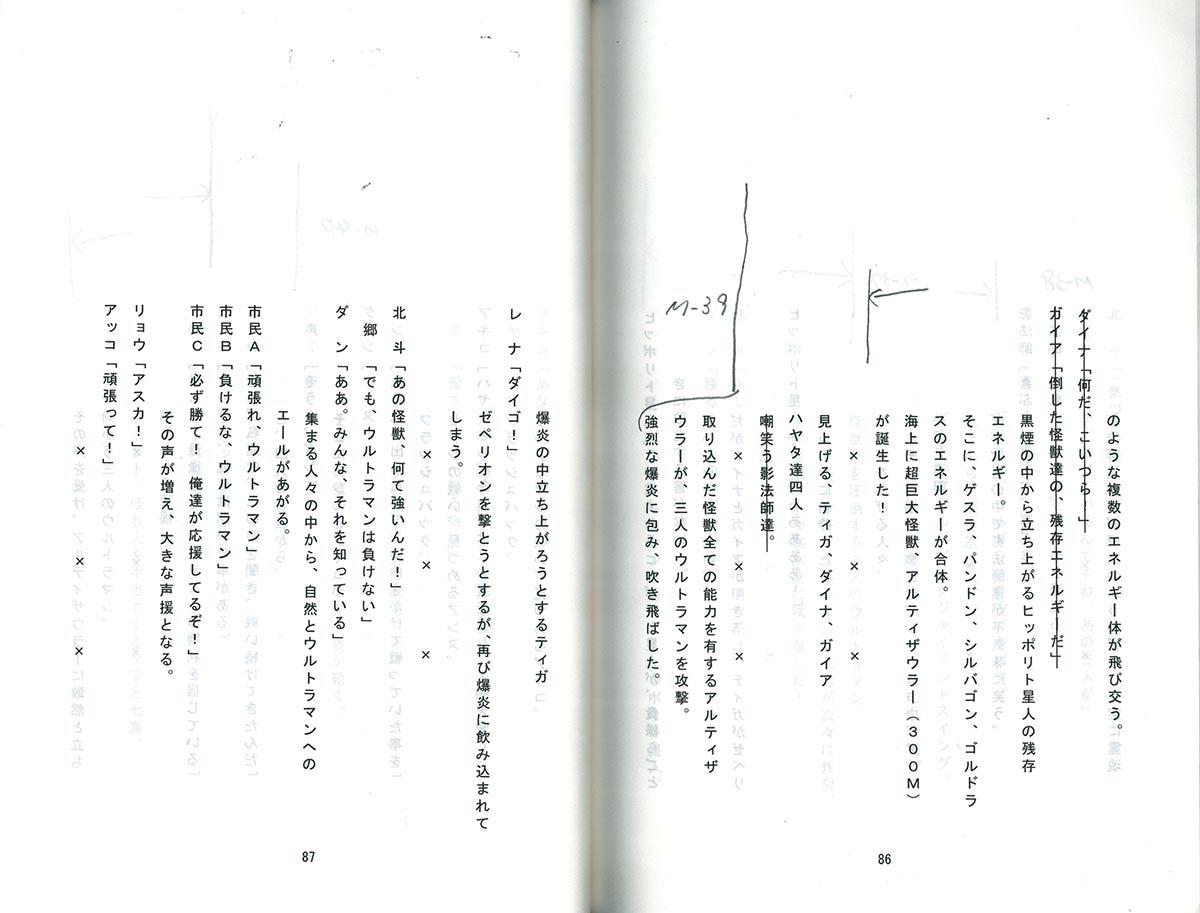 のような複数のエネルギー体が飛び交う。
ダイナ「何だ、こいつら！」
ガイア「倒した怪獣達の、残存エネルギーだ」
黒煙の中から立ち上がるヒッポリト星人の残存
エネルギー。
そこに、ゲスラ、パンドン、シルバゴン、ゴルドラ
スのエネルギーが合体。
海上に超巨大怪獣、アルティザウラー（３００Ｍ）
が誕生した！
×　　×　　×
見上げる、ティガ、ダイナ、ガイア
ハヤタ達四人
嘲笑う影法師達。
×　　×　　×
取り込んだ怪獣全ての能力を有するアルティザ
ウラーが、三人のウルトラマンを攻撃。
M-39
強烈な爆炎に包み、吹き飛ばした。
86
爆炎の中立ち上がろうとするティガ
レナ「ダイゴ！」
ゼペリオンを撃とうとするが、再び爆炎に飲み込まれて
しまう。
×　　×　　×
北斗「あの怪獣、何て強いんだ！」
郷「でも、ウルトラマンは負けない」
ダン「ああ。みんな、それを知っている」
集まる人々の中から、自然とウルトラマンへの
エールがあがる。
市民Ａ「頑張れ、ウルトラマン」
市民Ｂ「負けるな、ウルトラマン」
市民Ｃ「必ず勝て！俺達が応援してるぞ！」
その声が増え、大きな声援となる。
リョウ「アスカ！」
アッコ「頑張って！」
×　　×　　×
87